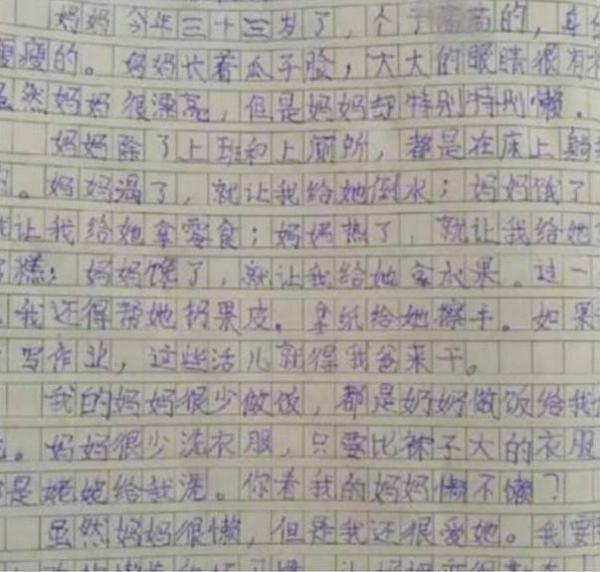 妈妈今年三十三岁了，个子高高的，身
瘦瘦的。妈妈长着瓜子脸，大大的眼睛很有
虽然妈妈很漂亮，但是妈妈却特别特别懒。
妈妈除了上班和上厕所，都是在床上躺
。妈妈渴了，就让我给她倒水；妈妈饿了
让我给她拿零食；妈妈热了，就让我给她
糕；妈妈馋了，就让我给她拿水果。过一
我还得帮她扔果皮。拿纸给她擦手。如果
写作业，这些活儿就得我爸来干。
我的妈妈很少做饭，都是奶奶做饭给我
。妈妈很少洗衣服，只要比袜子大的衣服
是姥姥给我洗。你看我的妈妈懒不懒？
虽然妈妈很懒，但是我还很爱她。我要